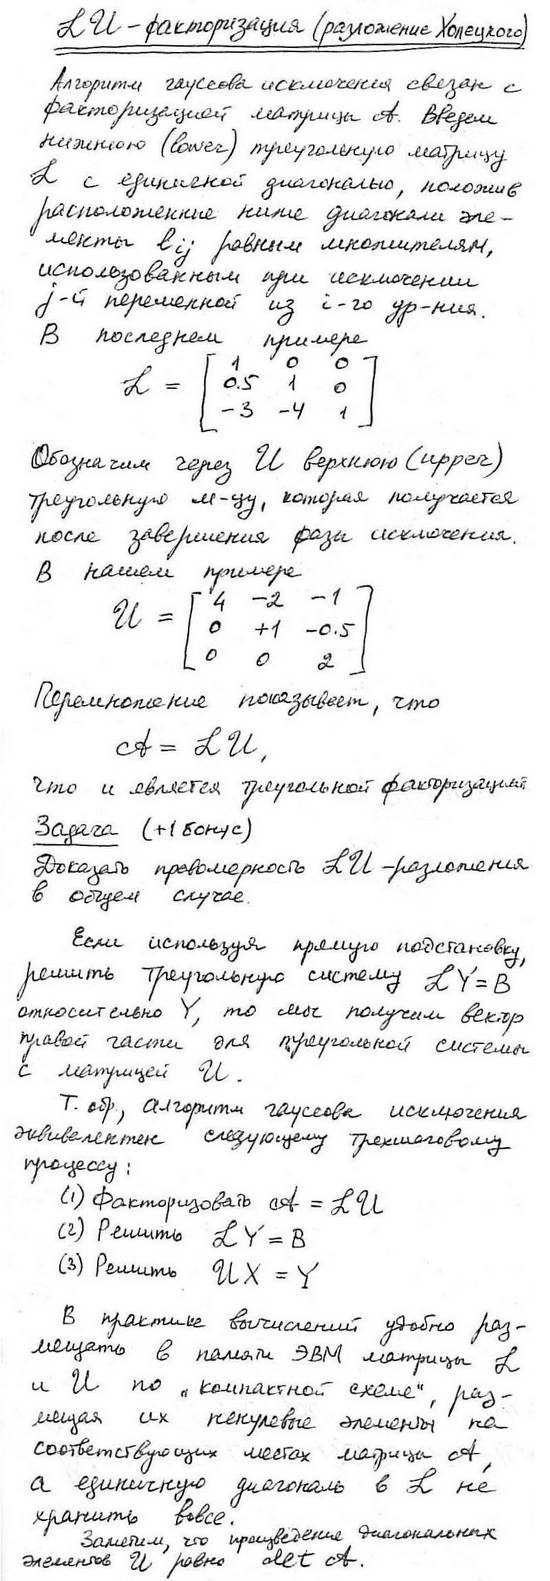 LU-факторизация (разложение Холецкого)
Алгоритм гауссова исключения связан с
факторизацией матрицы A. Введем
нижнюю (lower) треугольную матрицу
L с единичной диагональю, положив
расположенные ниже диагонали эле-
менты lij равным множителям,
использованным при исключении
j-й переменной из i-го ур-ния.
В последнем примере
L = [ 1 0 0
0.5 1 0
-3 -4 1 ]
Обозначим через U верхнюю (upper)
треугольную м-цу, которая получается
после завершения фазы исключения.
В нашем примере
U = [ 4 -2 -1
0 +1 -0.5
0 0 2 ]
Перемножение показывает, что
A = LU,
что и является треугольной факторизацией
Задача (+1 бонус)
Доказать правомерность LU-разложения
в общем случае.
Если используя прямую подстановку,
решить треугольную систему LY=B
относительно Y, то мы получим вектор
правой части для треугольной системы
с матрицей U.
Т. обр., алгоритм гауссова исключения
эквивалентен следующему трехшаговому
процессу:
(1) Факторизовать A = LU
(2) Решить LY = B
(3) Решить UX = Y
В практике вычислений удобно раз-
мещать в памяти ЭВМ матрицы L
и U по „компактной схеме", раз-
мещая их ненулевые элементы на
соответствующих местах матрицы A,
а единичную диагональ в L не
хранить вовсе.
Заметим, что произведение диагональных
элементов U равно det A.